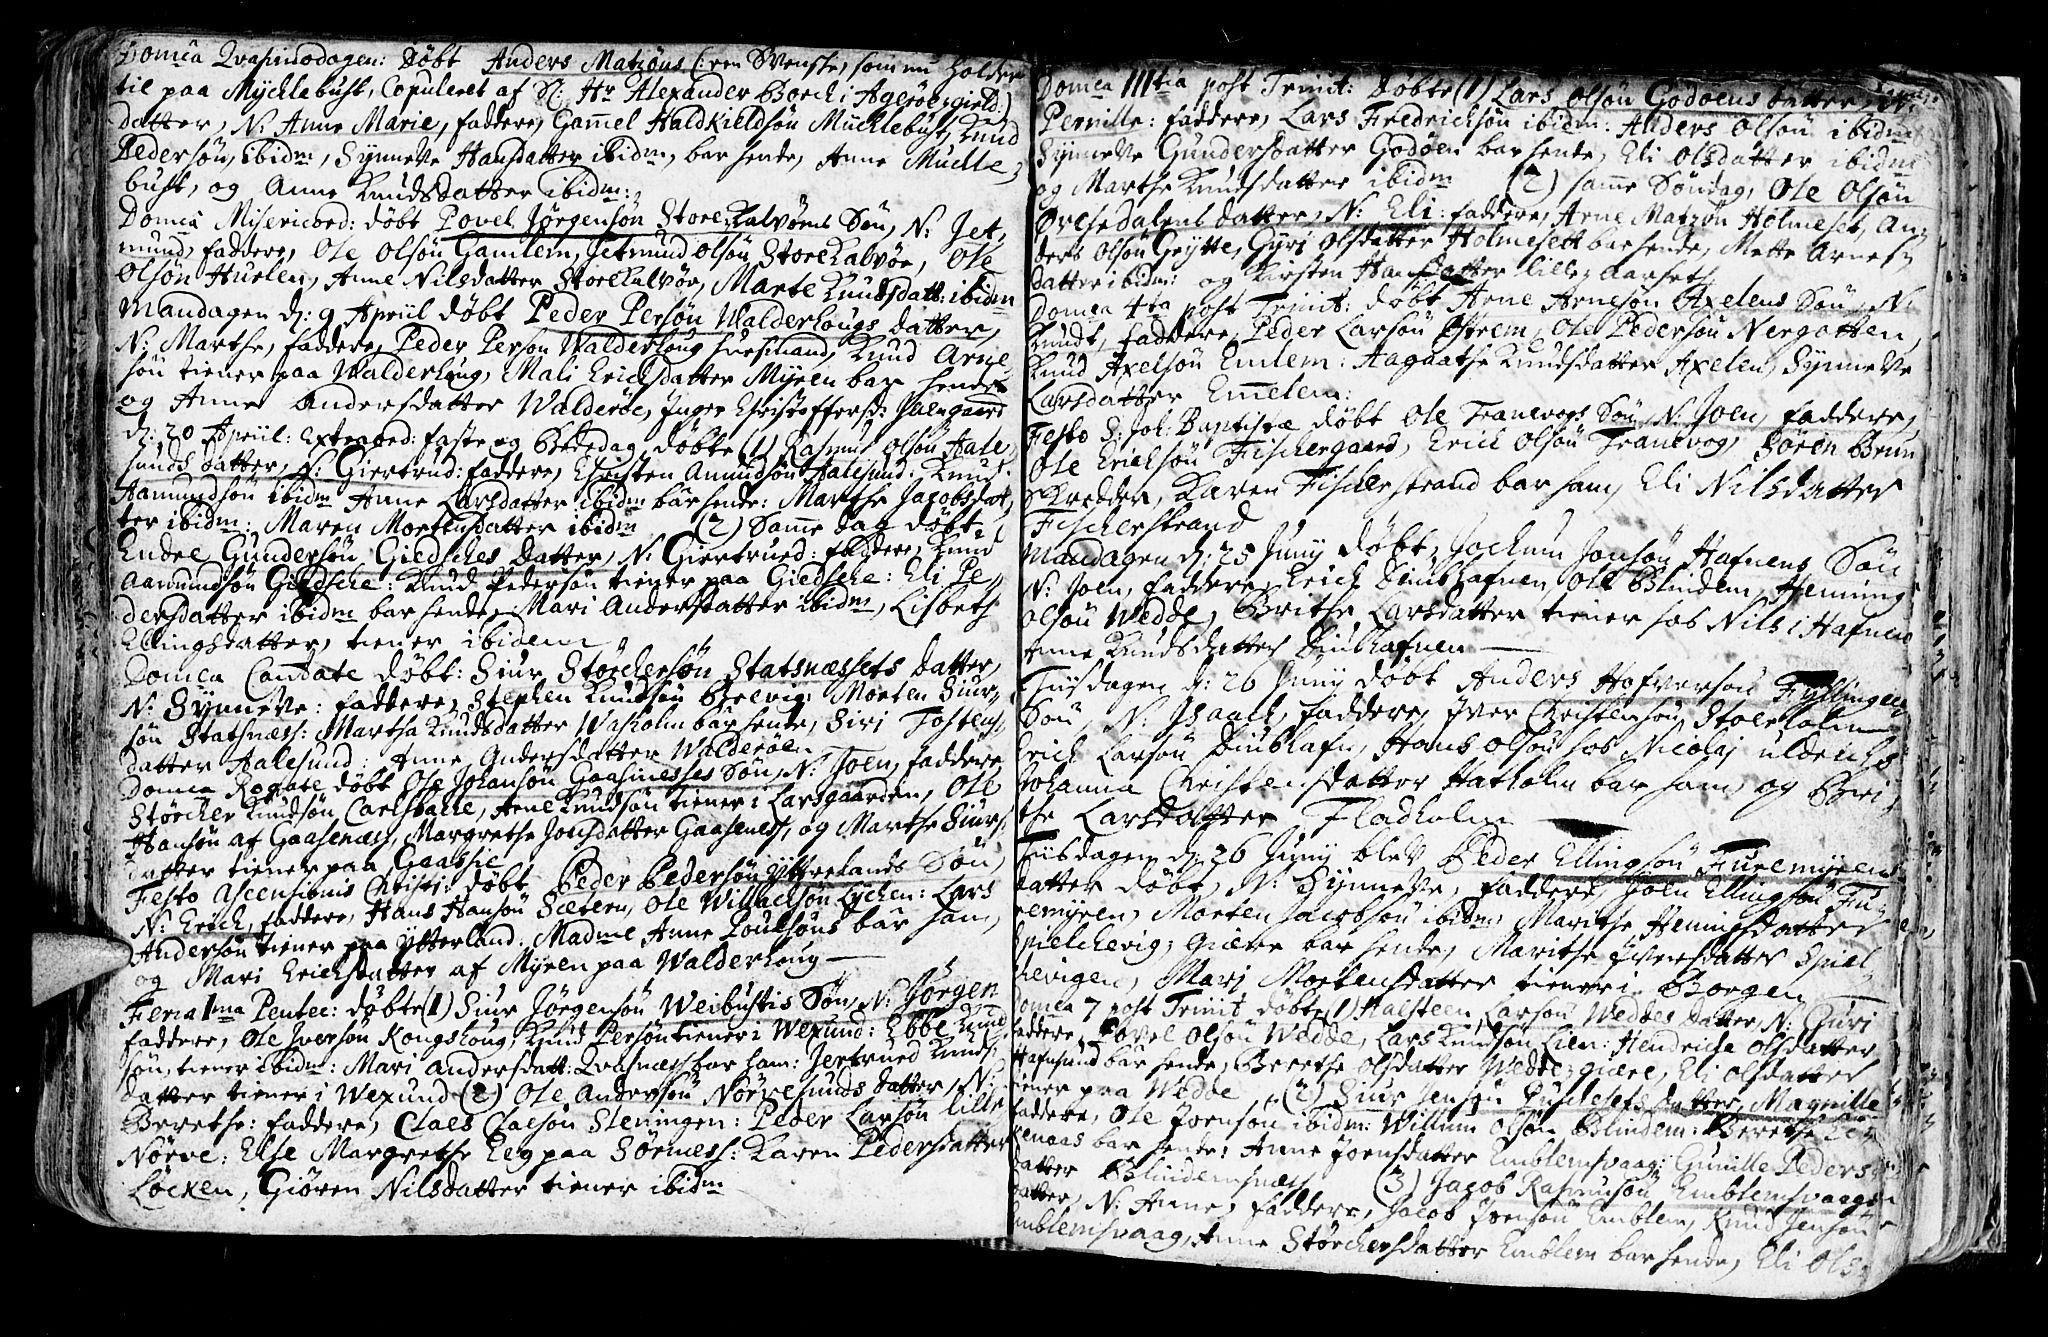 Domca Qvasimodogen: døbt Anders Matzøns (: en Svenske, som nu holder
til paa Mÿchlebust, Copuleret af Sl: Hr Alexander Borch i Agerøe gield)
datter, N: Anne Marie, faddere, Gamel Haldkieldsøn Mucklebust, Knud
Pedersøn, ibidm, Sÿnneve Hansdatter ibidm, bar hende, Anne Muckle
bust, og Anne Knudsdatter ibidm:
Domca Misericord: døbt Povel Jørgensøn Store Kalvøens Søn, N: Jet,
mund, faddere, Ole Olsøn Gamlem, Jetmund Olsøn Store Kalvøe, Ole
Olsøn Huelen, Anne Nilsdatter Store Kalvøe, Marte Knudsdatt: ibidm
Mandagen d: 9 Apriil døbt Peder Persøn Walderhougs datter,
N: Marthe, faddere, Peder Person Walderhoug huusmand, Knud Arne,
søn tiener paa Walderhoug, Mali Erichsdatter Mÿren bar hende
og Anne Andersdatter Walderøe, Inger Christoffersd:
d: 20 Apriil: Extraord: faste og Bededag døbte (1) Rasmus Olsøn Aale,
sunds datter, N: Giertrud: faddere, Christen Amundsøn Aalesund: Knud
Aamundsøn ibidm Anne Larsdatter ibidm bar hende: Marthe Jacobsdat,
ter ibidm: Maren Mortensdatter ibidm (2) Same dag døbt
Endre Gundersøn Giedsches datter, N: Giertrued: faddere, Knud
Aamundsøn Giedsche: Knud Pedersøn tiener paa Giedsche: Eli Pe,,
dersdatter ibidm bar hende, Mari Andersdatter ibidm, Lisbeth
Ellingsdatter, tiener ibidem
Domca Cantate døbt: Siur Størchersøn Statsnæssets datter,
N: Sÿnneve: faddere, Stephen Knudsøn Breevig: Morten Siur,
søn Statsnæss: Martha Knudsdatter Washolm bar hende, Siri Tosten,
datter Aalesund: Anne Andersdatter Walderøen
Domca Rogate døbt Ole Johansøn Gaasnesses Søn, N: Joen, faddere,
Størcher Knudsøn, Carlsballe, Arne Knudsøn tiener i Larsgaarden, Ole
Hansøn af Gaasenæss, Margrethe Jonsdatter Gaasenæss, og Marthe Siurs,
datter tiener paa
Festo Ascensionis Christi: døbt Peder Pedersøn Ÿtterlands Søn,
N: Erich, faddere, Hans Hansøn Sætern, Ole Willacksøn Lÿchen: Lars
Andersøn tiener paa Ÿtterland: Madme Anne Poulsøns bar ham,
og Mari Erichsdatter af Mÿren paa Walderhoug
Feria 1ma Pentec: døbte (1) Siur Jørgensøn Weibustis Søn, N: Jørgen
faddere, Ole Iversøn Kongshoug, Knud Persøn tiener i Wexund: Ebbe Knud
søn, tiener ibidm: Mari Andersdatt: Qvasnæss bar ham: Jertrued Knuds,
datter tiener i Wexund (2) Ole Andersøn Nørvesunds datter, N:
Berethe: faddere, Claes Claesøn Steningen: Peder Larsøn lille
Nørve: Else Margrethe Eeg paa Sørness: Karen Pedersdatter
Løcken, Giøren Nilsdatter tiener ibidm
Domca IIItia post Trinit: døbte (1) Lars Olsøn Godøens datter, N:
Pernille: faddere, Lars Fredricksøn ibidm: Anders Olsøn ibidm
Sÿnneve Gundersdatter Godøen bar hende, Eli Olsdatter ibidm
og Marthe Knudsdatter ibidm (2) same Søndag, Ole Olsøn
Ørsedalens datter, N: Eli: faddere, Arne Matzøn Holmeset, An,
ders Olsøn Grÿtte, Gÿri Olsdatter Holmesett bar hende, Mette Arnes,
datter ibidm: og Kirsten Hansdatter lille Aarseth
Domca 4ta post Trinit: døbt Arne Arnesøn Axelens Søn, N:
Knudt, faddere, Peder Larsøn Østrem, Ole Pedersøn Nergatten,
Knud Axelsøn Emlem: Aagaathe Knudsdatter Axelen, Sÿnneve
Larsdatter Emelem:
Festo S: Joh: Baptistæ døbt Ole Tranevogs Søn, N: Joen, faddere,
Ole Erichsøn Fischergaard, Erich Olsøn Tranevog, Søren Brun
Skredder, Karen Fischerstrand bar ham, Eli Nilsdatter
Fischerstrand
Mandagen d: 25 Junÿ døbt, Jochum Jonsøn Hafnens Søn
N: Joen, faddere, Erich Diubhafnen, Ole Blindem, Henning
Olsøn Wedde, Brithe Larsdatter tiener hos Nils i Hafnen
Anne Knudsdatter Diubhafnen
Tiisdagen d: 26 Junÿ døbt Anders Hafversøn Fÿllingens
Søn, N: Isaach, faddere, Iver Christensøn Stoerholm
Erich Larsøn Diubhafn, Hans Olsøn hos Nicolaj Uldrichs
Johanna Christensdatter Hatholm bar ham, og Bri,
the Larsdatter Fladholm
Tiisdagen d: 26 Junÿ blev Peder Ellingsøn Furemÿrens
datter døbt, N: Sÿnneve, faddere, Joen Ellingsøn Fu,
remÿren, Morten Jacobsøn ibidm: Marithe Heningsdatter
Spielchevig, giære bar hende, Marithe Iversdatter Spiel,
chevigen, Mari Mortensdatter tiener i Borgen
Domca 7 post Trinit døbte, (1) Halsteen Larsøn Weddes datter, N: Guri
faddere, Povel Olsøn Wedde, Lars Knudsøn Lien: Hendriche Olsdatter
Hafnsund bar hende, Berethe Olsdatter Wedde, giære, Eli Olsdatter
tiener paa Wedde (2) Siur Jensøn datter, Magnille
faddere, Ole Joensøn ibidm: Willum Olsøn Blindem: Berethe
kenaas bar hende: Anne Joensdatter Emblemsvaag: Gunille Peders
datter Blindemsnæss (3) Jacob Rasmusøn Emblemsvaagen
datter, N: Anne, faddere, Jacob Joensøn Emblem, Knud Jensøn
Emblemsvaag, Anne Størchersdatter Emblem bar hende, Eli Ols,